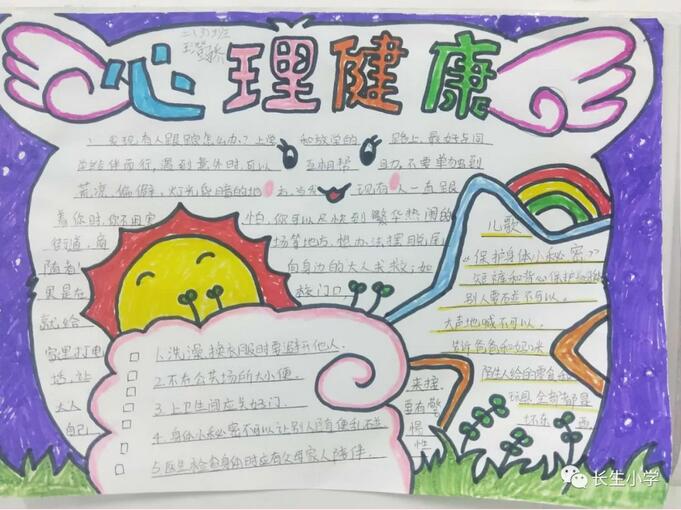 二(3)班
心理健康
1、发现有人跟踪怎么办?上学 和放学的 路上,最好与同
学结伴而行,遇到意外时可以 互相帮 助,不要单独到
荒凉、偏僻、灯光昏暗的地 方,当发 现有 人一直跟
着你时,你不用害 怕,你可以尽快到 繁华热闹的
街道,商 场等地方,想办法摆脱尾
随者! 向身边的大人求救;如
果是在 校门口,
就给
家里打电
话,让 来接,
大人 要有警
自己 惕
性
1.洗澡换衣服时要避开他人.
2.不在公共场所大小便.
3.上卫生间应关好门.
4.身体小秘密不可以让别人随便看
5.医生检查身体时应有父母家人陪伴.
儿歌
《保护身体小秘密》
短裤和背心保护
别人要看是不可以,
大声地喊不可以,
告诉爸爸和妈咪
陌生人给的零食和
玩具,全部都是
坏东 西
长生小学